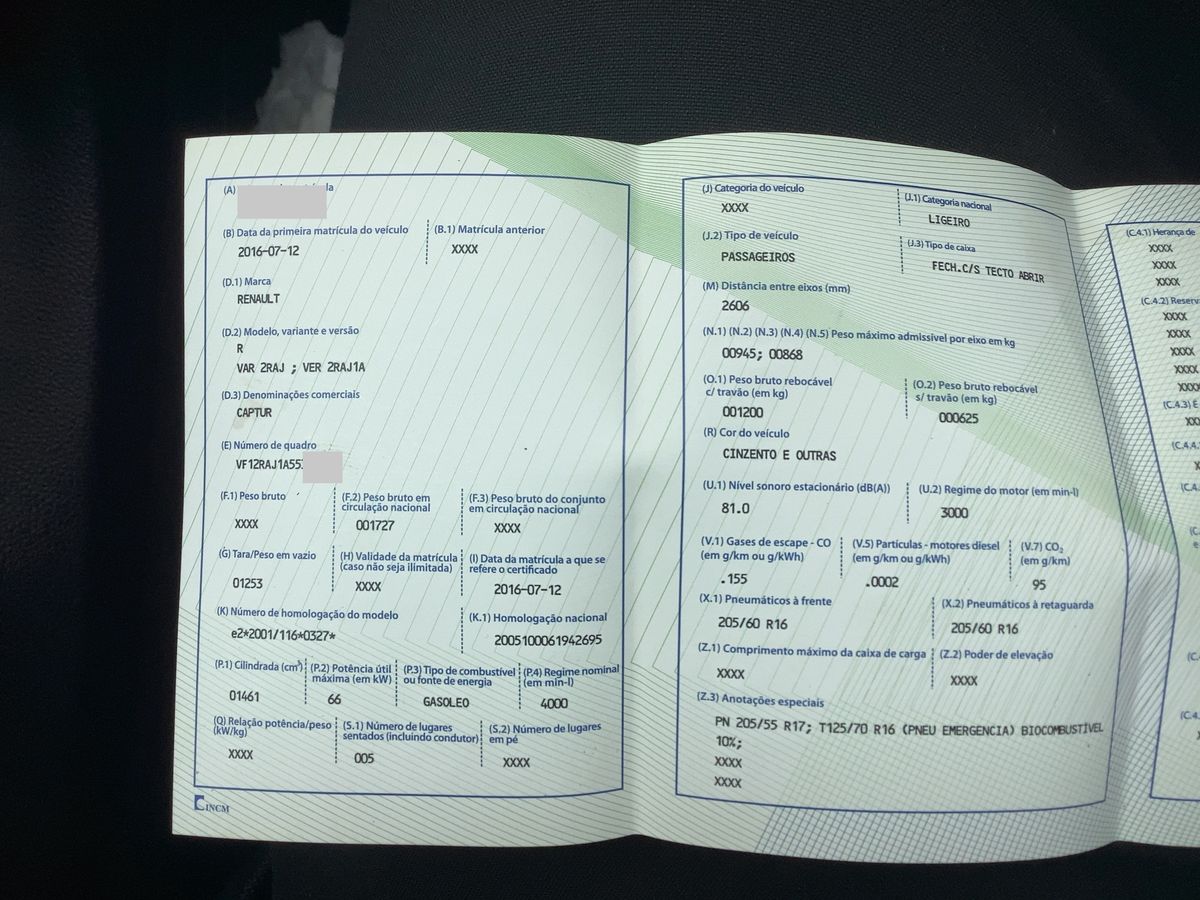 (A)
(B) Data da primeira matrícula do veículo
(B.1) Matrícula anterior
2016-07-12
XXXX
(D.1) Marca
RENAULT
(D.2) Modelo, variante e versão
R
VAR 2RAJ ; VER 2RAJ1A
(D.3) Denominações comerciais
CAPTUR
(E) Número de quadro
VF12RAJ1A55
(F.1) Peso bruto
XXXX
(F.2) Peso bruto em
circulação nacional
001727
(F.3) Peso bruto do conjunto
em circulação nacional
XXXX
(G) Tara/Peso em vazio
01253
(H) Validade da matrícula
(caso não seja ilimitada)
XXXX
(I) Data da matrícula a que se
refere o certificado
2016-07-12
(K) Número de homologação do modelo
e2*2001/116*0327*
(K.1) Homologação nacional
2005100061942695
(P.1) Cilindrada (cm³)
01461
(P.2) Potência útil
máxima (em kW)
66
(P.3) Tipo de combustível
ou fonte de energia
GASOLEO
(P.4) Regime nominal
(em min-l)
4000
(Q) Relação potência/peso
(kW/kg)
XXXX
(S.1) Número de lugares
sentados (incluindo condutor)
005
(S.2) Número de lugares
em pé
XXXX
INCM
(J) Categoria do veículo
XXXX
(J.1) Categoria nacional
LIGEIRO
(J.2) Tipo de veículo
PASSAGEIROS
(J.3) Tipo de caixa
FECH.C/S TECTO ABRIR
(M) Distância entre eixos (mm)
2606
(N.1) (N.2) (N.3) (N.4) (N.5) Peso máximo admissivel por eixo em kg
00945; 00868
(O.1) Peso bruto rebocável
c/ travão (em kg)
001200
(O.2) Peso bruto rebocável
s/ travão (em kg)
000625
(R) Cor do veículo
CINZENTO E OUTRAS
(U.1) Nível sonoro estacionário (dB(A))
81.0
(U.2) Regime do motor (em min-l)
3000
(V.1) Gases de escape - CO
(em g/km ou g/kWh)
.155
(V.5) Partículas - motores diesel
(em g/km ou g/kWh)
.0002
(V.7) CO₂
(em g/km)
95
(X.1) Pneumáticos à frente
205/60 R16
(X.2) Pneumáticos à retaguarda
205/60 R16
(Z.1) Comprimento máximo da caixa de carga
XXXX
(Z.2) Poder de elevação
XXXX
(Z.3) Anotações especiais
PN 205/55 R17; T125/70 R16 (PNEU EMERGENCIA) BIOCOMBUSTÍVEL
10%;
XXXX
XXXX
(C.4.1) Herança de
XXXX
XXXX
XXXX
(C.4.2) Reserv
XXXX
XXXX
XXXX
XXXX
XXXX
(C.4.3) É
XX
(C.4.4.